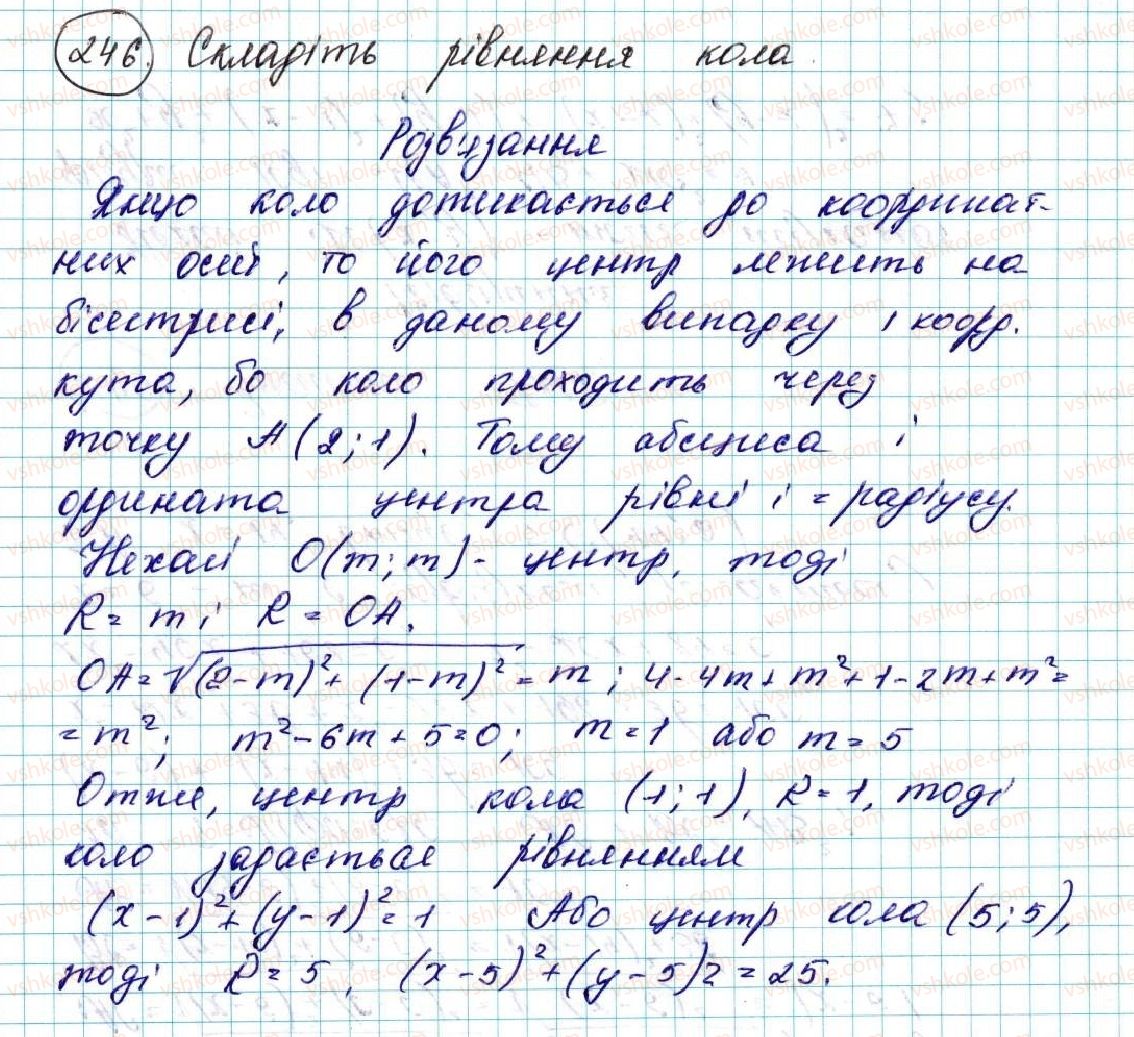 246. Складіть рівняння кола.
Розв'язання
Якщо коло дотикається до координат-
них осей, то його центр лежить на
бісектрисі, в даному випадку 1 коорд.
кута, бо коло проходить через
точку A(2;1). Тому абсциса і
ордината центра рівні і = радіусу.
Нехай O(m;m) - центр, тоді
R = m і R = OA.
OA = √(2-m)²+(1-m)² = m; 4-4m+m²+1-2m+m² =
= m²; m²-6m+5=0; m=1 або m=5
Отже, центр кола (1;1), R=1, тоді
коло задається рівнянням
(x-1)²+(y-1)²=1 Або центр кола (5;5),
тоді R=5, (x-5)²+(y-5)2=25.